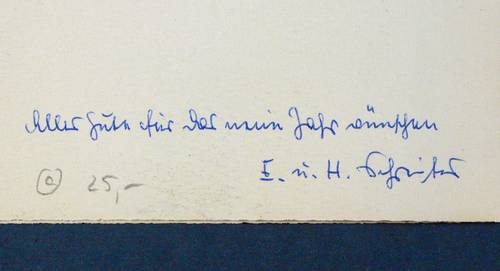 Alles Gute für das neue Jahr wünschen
E. u. H. Schreiter
25,-